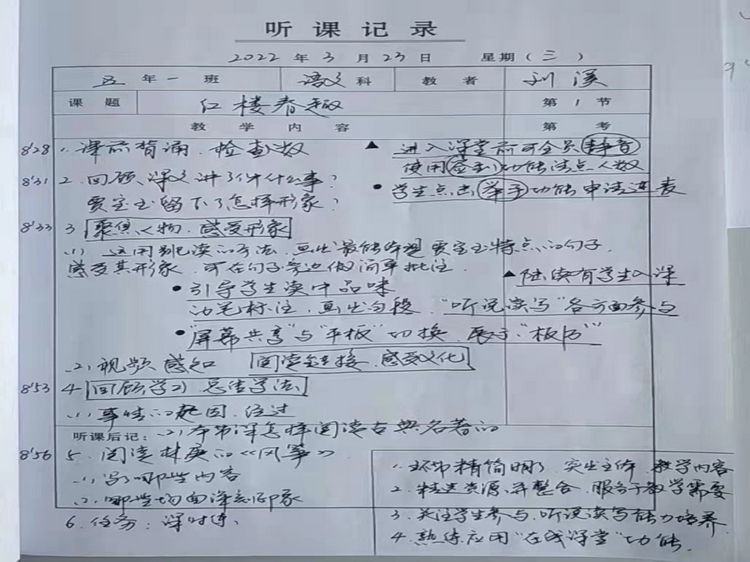 听课记录
2022年3月23日 星期(三)
五年一班 语文科 教者 刘溪
课题 红楼春趣 第1节
教学内容 备考
8'28 1. 课前背诵、检查人数
▲ 进入课堂后可全员静音
使用签到功能清点人数
8'31 2. 回顾:课文讲了件什么事?
贾宝玉留下了怎样形象?
• 学生点击举手功能申请连麦
8'33 3 聚焦人物,感受形象
(1) 运用跳读的方法,画出最能体现贾宝玉特点的句子,
感受其形象,可在句子旁边做简单批注.
▲陆续有学生入课
• 引导学生读中品味
动笔标注,画出勾移. "听说读写"各方面参与
• "屏幕共享"与"平板"切换,展示"板书"
(2) 视频感知 阅读链接,感受文化
8'53 4 回顾学习 总结学法
(1) 事情的起因、经过
听课后记: (2) 本节课怎样阅读古典名著的
8'56 5. 阅读林庚的《风筝》
(1) 写哪些内容
(2) 哪些场面深刻印象
6. 任务:课时练
1. 环节精简明了,突出主体,教学内容
2. 精选资源,并整合,服务于教学需要
3. 关注学生参与,听说读写能力培养
4. 熟练应用"在线课堂"功能.